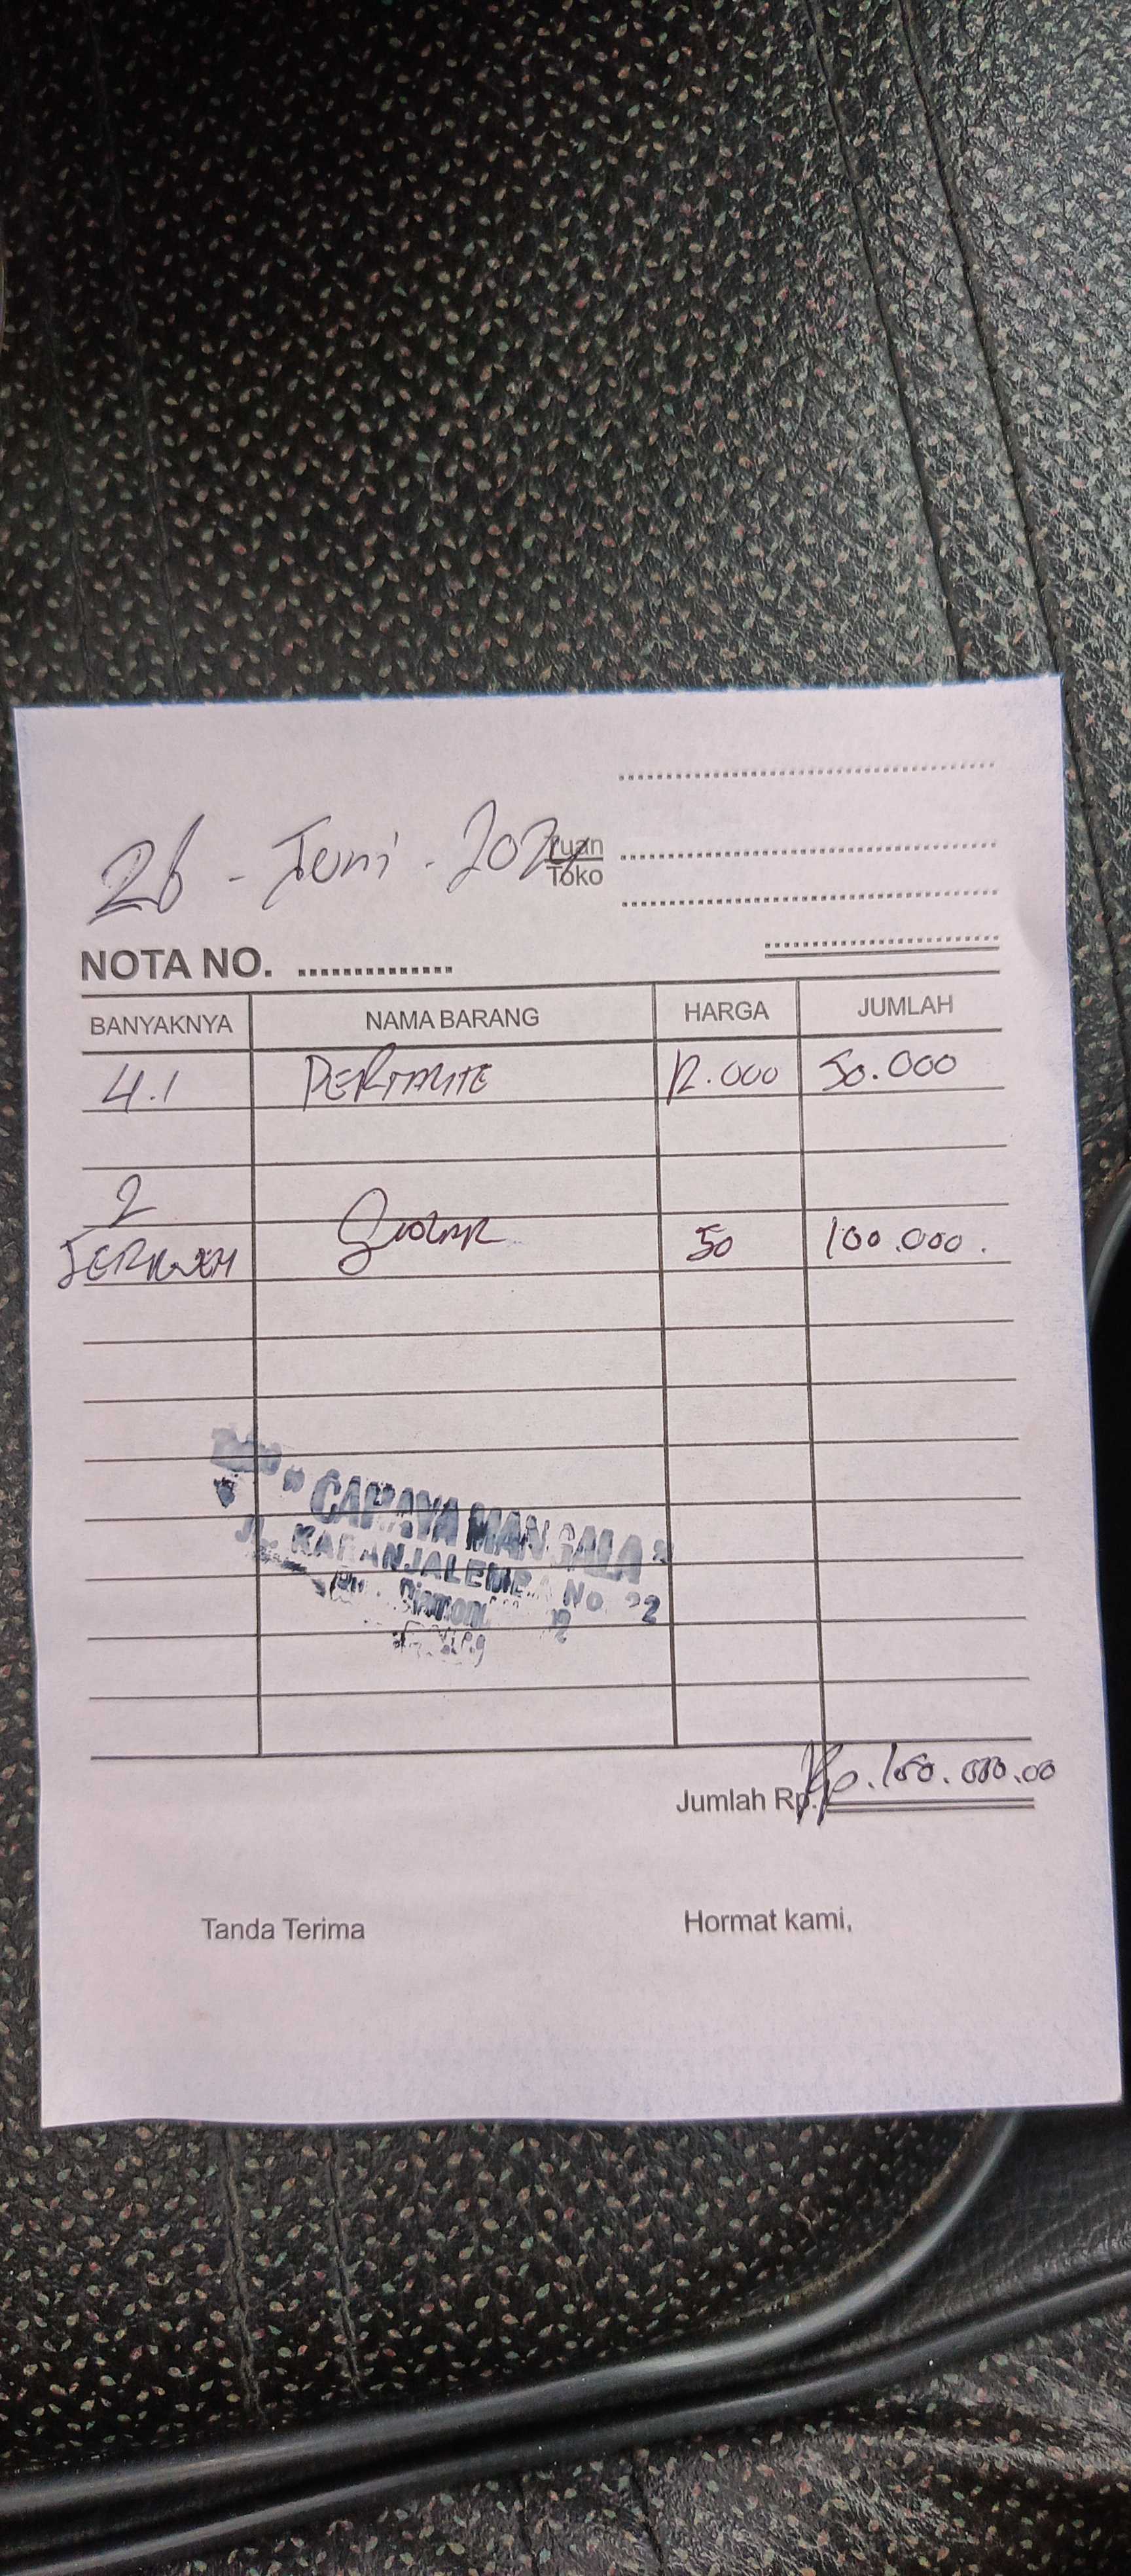 26 - Juni - 2024
Tuan
Toko
NOTA NO. ...............
BANYAKNYA NAMA BARANG HARGA JUMLAH
4.1 PERTALITE 12.000 50.000
2
JERIGEN 50 100.000.
" CAHAYA MANGALA "
JL. KARANJALEMBA No. 22
Jumlah Rp. Rp. 150.000.00
Tanda Terima Hormat kami,